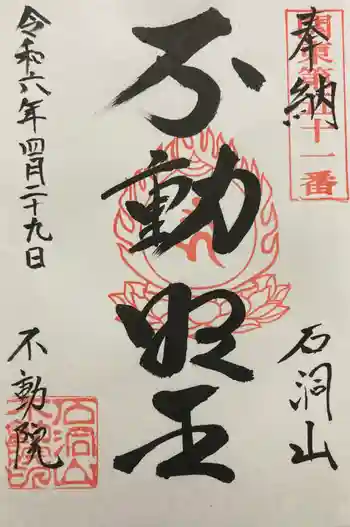 奉納
関東第卅十一番
石洞山
不動明王
令和六年四月二十九日
不動院